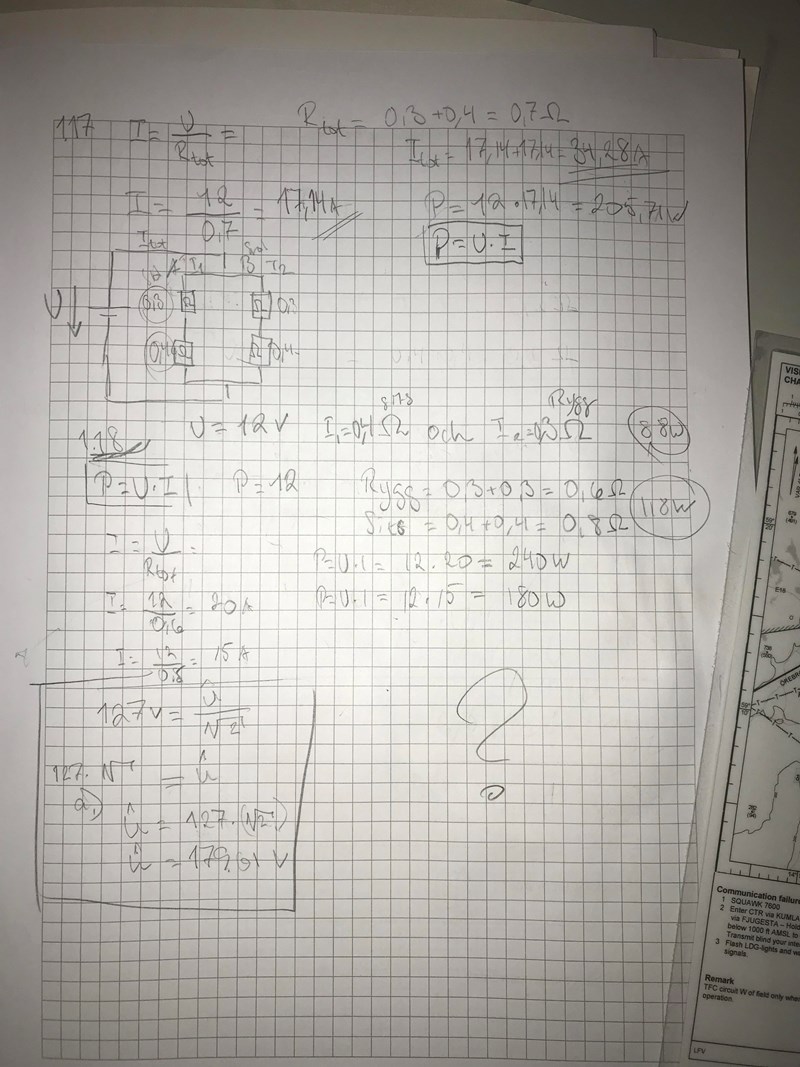 117 I = U/Rtot =
Rtot = 0,3+0,4 = 0,7Ω
Itot = 17,14+17,14 = 34,28A
I = 12/0,7 = 17,14A
P = 12 · 17,14 = 205,71W
P = U · I
Itot
A I1 B I2
U
0,3 Ω Ω 0,3
0,4 Ω Ω 0,4
1.18 U = 12V I1=0,4Ω och I2=0,3Ω
Rygg
88W
P = U · I P = 12 Rygg = 0,3+0,3 = 0,6Ω
118W
= 0,4+0,4 = 0,8Ω
I = U/Rtot =
P=U·I = 12·20 = 240W
I = 12/0,6 = 20A
P=U·I = 12·15 = 180W
I = 12/0,8 = 15A
127V = û/√2
127·√ = û
a)
û = 127·(√2)
û = 179,61 V
?
VIS
CHA
Communication failur
1 SQUAWK 7600
2 Enter CTR via KUMLA
via FJUGESTA – Hold
below 1000 ft AMSL to
Transmit blind your inte
3 Flash LDG-lights and w
signals.
Remark
TFC circuit W of field only whe
operation
LFV